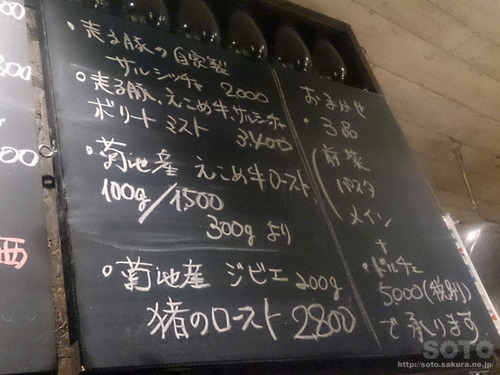 ・走る豚の自家製
サルシッチャ 2000
・走る豚、えこめ牛、サルシッチャ
ボリートミスト 3400
・菊池産 えこめ牛ロースト
100g/1500
300gより
・菊池産 ジビエ 200g
猪のロースト 2800
おまかせ
・3品
前菜
パスタ
メイン
+
・ドルチェ
5000(税別)
で承ります
SOTO
http://soto.sakura.ne.jp/